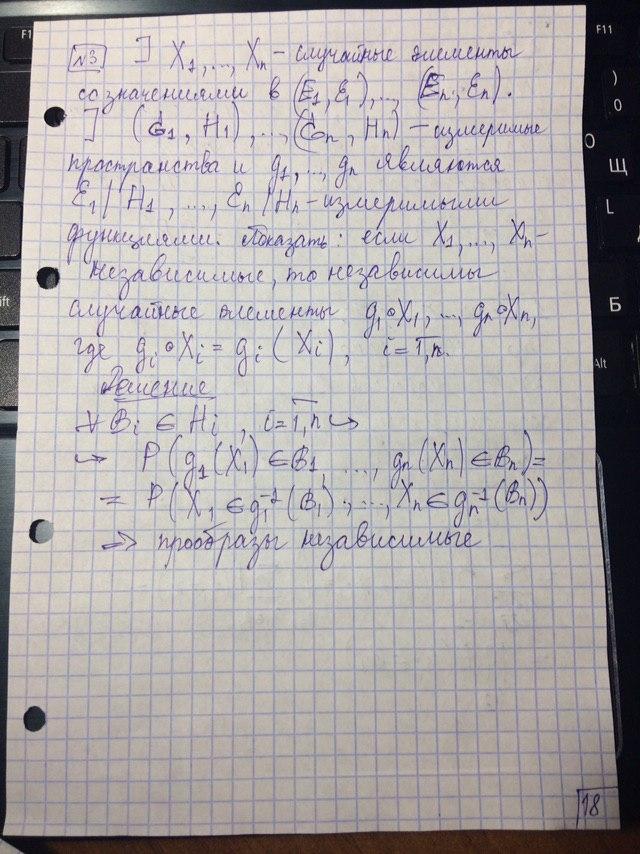 №3 ] X₁,..., Xₙ - случайные элементы
со значениями в (E₁, ℰ₁),..., (Eₙ, ℰₙ).
] (G₁, H₁),..., (Gₙ, Hₙ) - измеримые
пространства и g₁,..., gₙ являются
ℰ₁|H₁,..., ℰₙ|Hₙ - измеримыми
функциями. Показать: если X₁,..., Xₙ -
независимые, то независимы
случайные элементы g₁∘X₁,..., gₙ∘Xₙ,
где gᵢ∘Xᵢ = gᵢ(Xᵢ), i=1,n.
Решение
∀ Bᵢ ∈ Hᵢ, i=1,n ↪
↪ P(g₁(X₁) ∈ B₁, ..., gₙ(Xₙ) ∈ Bₙ) =
= P(X₁ ∈ g₁⁻¹(B₁),..., Xₙ ∈ gₙ⁻¹(Bₙ))
⇒ прообразы независимые
18
F11
F11
)
0
O
Щ
L
Д
Б
Alt
ift